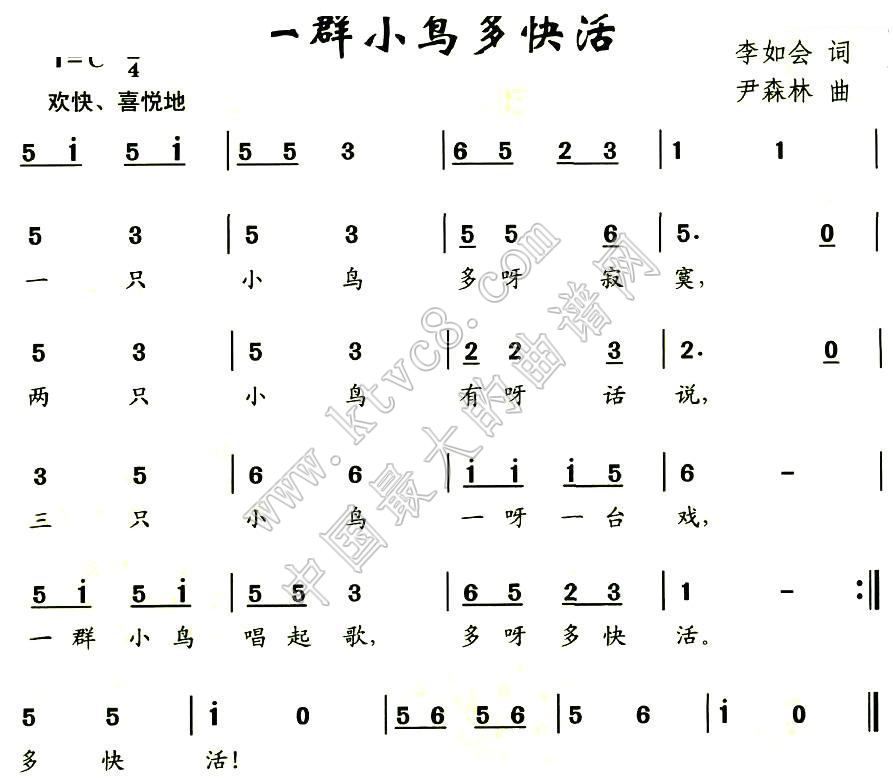 一群小鸟多快活
1=C 4
李如会 词
欢快、喜悦地
尹森林 曲
5 i 5 i | 5 5 3 | 6 5 2 3 | 1 1 |
5 3 | 5 3 | 5 5 6 | 5. 0 |
一 只 小 鸟 多 呀 寂 寞,
5 3 | 5 3 | 2 2 3 | 2. 0 |
两 只 小 鸟 有 呀 话 说,
3 5 | 6 6 | i i i 5 | 6 - |
三 只 小 鸟 一 呀 一 台 戏,
5 i 5 i | 5 5 3 | 6 5 2 3 | 1 - :‖
一 群 小 鸟 唱 起 歌, 多 呀 多 快 活。
5 5 | i 0 | 5 6 5 6 | 5 6 | i 0 ‖
多 快 活!
www.ktvc8.com
中国最大的曲谱网